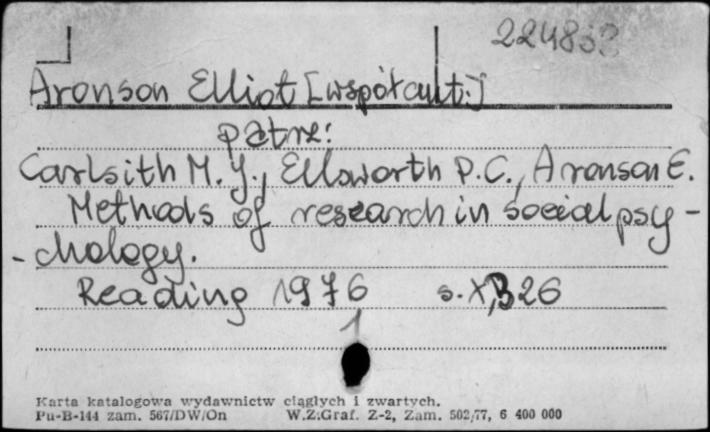 Aronson Elliot [współaut.]
patrz:
Carlsith M. J., Ellsworth P.C., Aronson E.
Methods of research in social psy-
-chology.
Reading 1976 s. X, 326
1
Karta katalogowa wydawnictw ciągłych i zwartych.
Pu-B-144 zam. 567/DW/On W.Z.Graf. Z-2, Zam. 502/77, 6 400 000